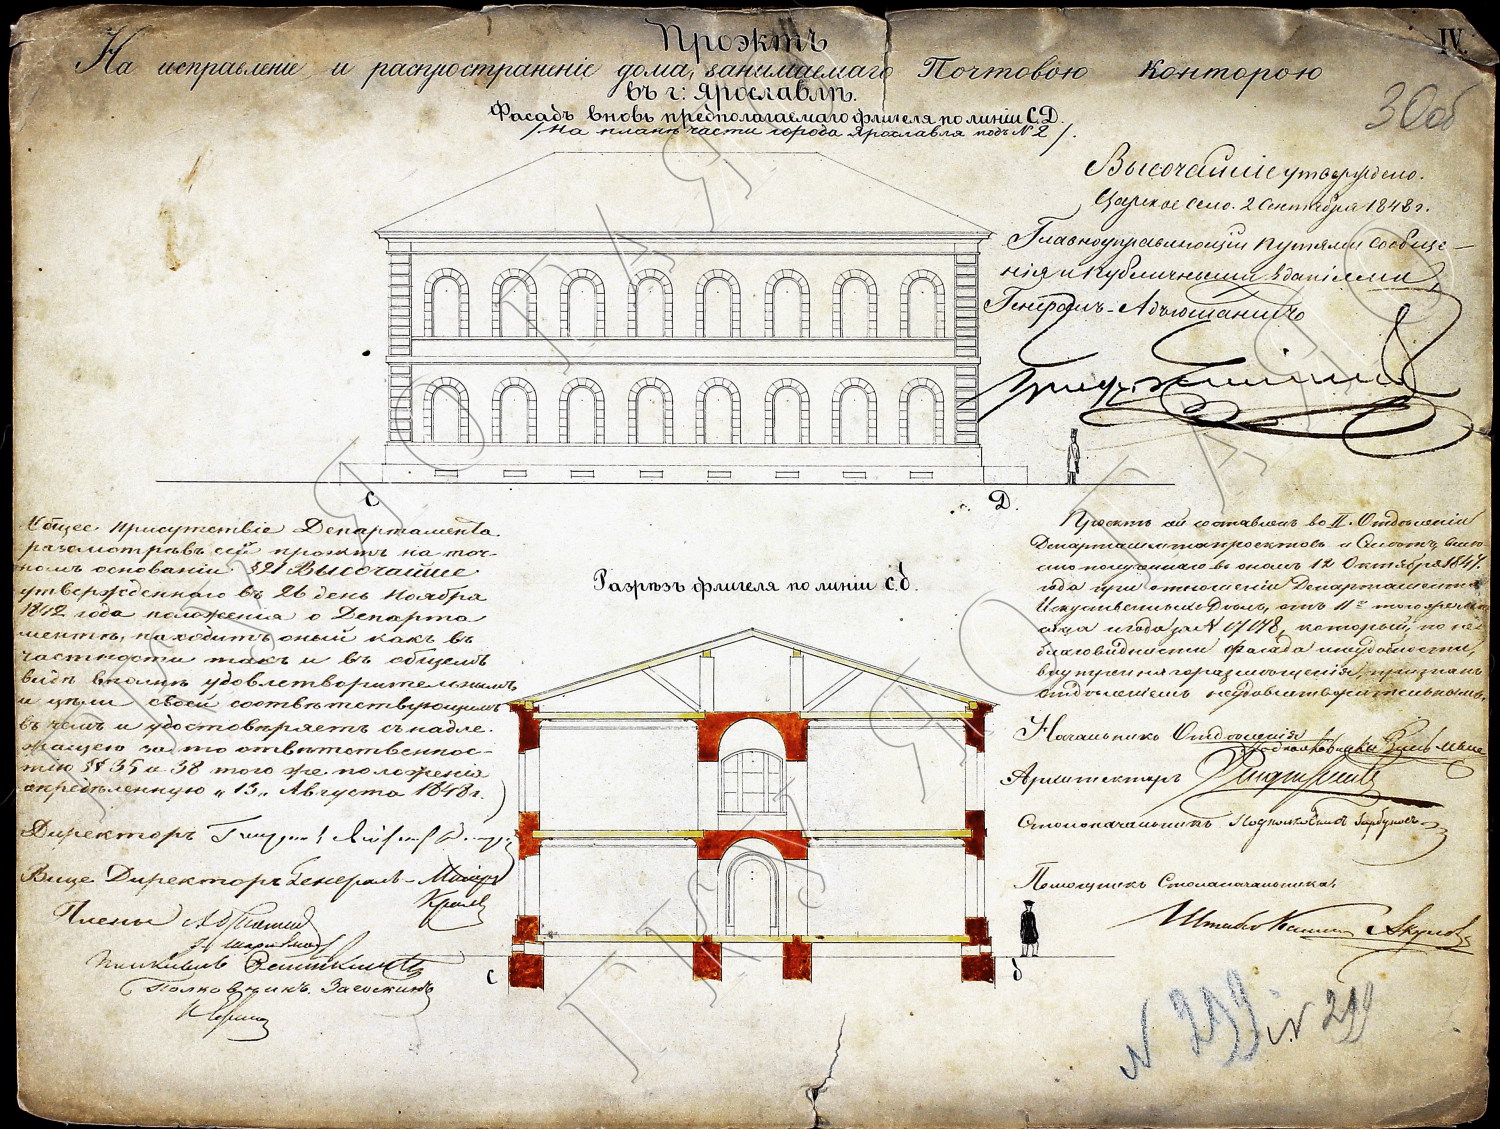 Проэктъ
IV.
На исправленіе и распространеніе дома, занимаемаго Почтовою Конторою
въ г: Ярославлѣ.
Фасадъ вновь предполагаемаго флигеля по линіи С.Д.
/На планѣ части города Ярославля подъ № 2/.
30об
Высочайше утверждено.
Царское село. 2 Сентября 1848 г.
Главноуправляющій Путями Сообще-
нія и Публичными зданіями,
Генералъ-Адъютантъ
Графъ Клейнмихель
С
Д.
Общее Присутствіе Департамента
разсмотрѣвъ сей проэктъ на точ-
номъ основаніи § 21 Высочайше
утвержденнаго въ 26 день Ноября
1842 года положенія о Департа
ментѣ, находитъ оный какъ въ
частности такъ и въ общемъ
видѣ вполнѣ удовлетворительнымъ
и цѣли своей соотвѣтствующимъ
въ чемъ и удостовѣряетъ съ надле-
жащею за то отвѣтственнос-
тію §§ 35 и 38 того же положенія
опредѣленную „13„ Августа 1848 г.
Директоръ
Вице Директоръ Генералъ-Маіоръ
Члены
Полковникъ
Полковникъ Загоскинъ
Разрѣзъ флигеля по линіи с.d.
с
d
Проэктъ сей составленъ во II. Отдѣленіи
Департамента проэктовъ и Смѣтъ,
полученнаго въ ономъ 12 Октября 1847.
года при отношеніи Департамента
Искуственныхъ Дѣлъ, отъ 11го того же
года за № который, по не
благовидности фасада и неудобности,
внутренняго размѣщенія, признанъ
отдѣленіемъ неудовлетворительнымъ.
Начальникъ Отдѣленія
Архитекторъ
Столоначальникъ
Помощникъ Столоначальника,
Штабсъ Капитанъ
N 299
N 299
ГКУ ЯО ГАЯО
ГКУ ЯО ГАЯО
ГКУ ЯО ГАЯО